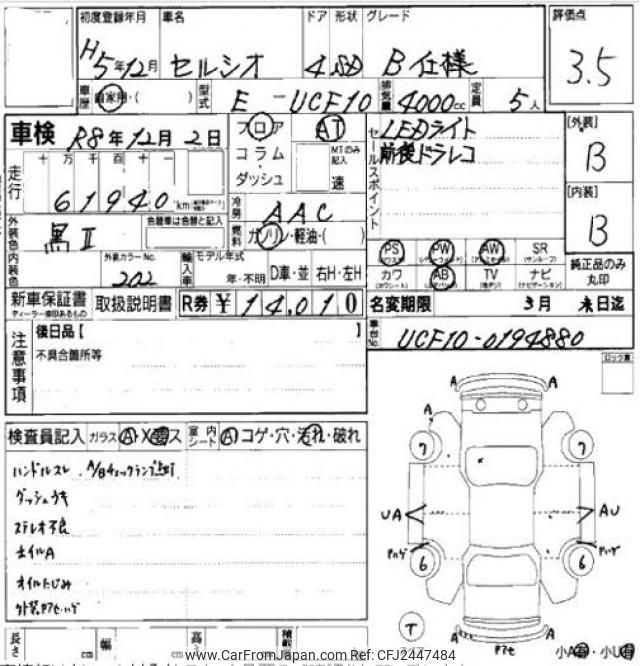 初度登録年月 車名 ドア 形状 グレード 評価点
H5年12月 セルシオ 4 SD B仕様 3.5
車歴 自家用・( ) 型式 E-UCF10 排気量 4000cc 定員 5人
車検 R8年12月2日 フロア AT セールスポイント LEDライト [外装]
十万千百十一 コラム MTのみ記入 前後ドラレコ B
走行 61940 km ダッシュ 速
冷房 AAC [内装]
外装色 黒II 色替車は色替と記入 燃料 ガソリン・軽油・( ) B
内装色 外装カラーNo. 202 輸入車 モデル年式 年・不明 D車・並 右H・左H
PS PW AW SR (サンルーフ)
カワ AB TV ナビ (ナビゲーション) 純正品のみ丸印
新車保証書 取扱説明書 R券 ¥14,010 名変期限 3月 末日迄
ディーラー捺印あるもの
注意事項 後日品【 】 車台No. UCF10-0194880
不具合箇所等 ロック車
検査員記入 ガラス A・X・ス 室内シート A コゲ・穴・汚れ・破れ
ハンドルスレ A/Bチェックランプ点灯
ダッシュウキ
ステレオ不良
ホイルA
オイルにじみ
外装アセ・ハゲ
A A
A
7 7
UA AU
アハゲ アハゲ
6 6
T A A アセ 小A・小U
長さ cm 幅 cm 高さ 積載
www.CarFromJapan.com Ref: CFJ2447484